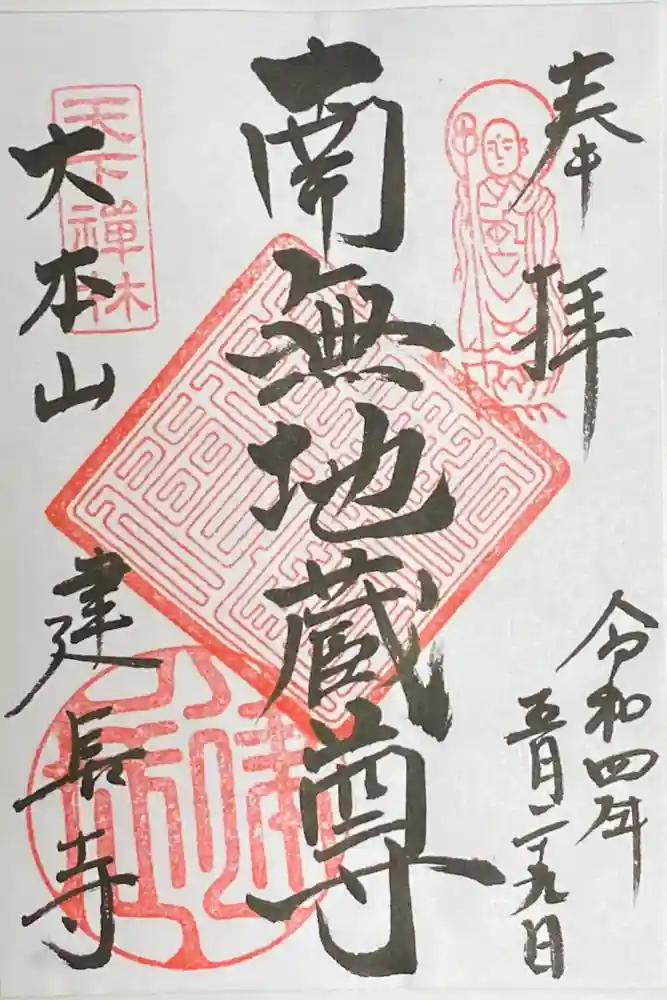 奉拝
令和四年
五月二十九日
南無地蔵尊
天下禅林
大本山
建長寺